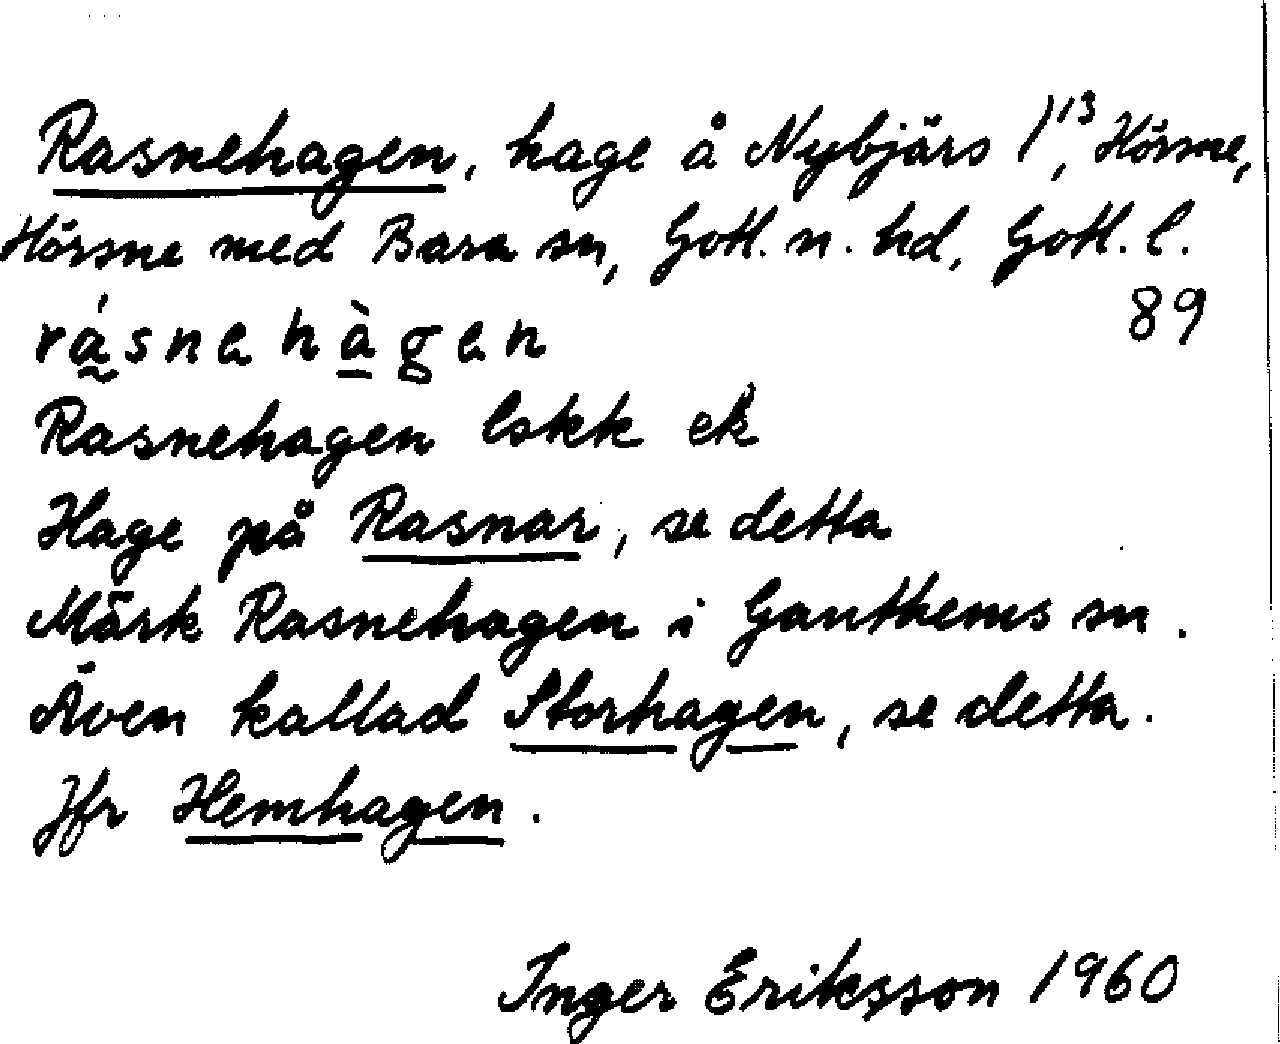 Rasnehagen, hage å Nybjärs 1¹³, Hörsne,
Hörsne med Bara sn, Gotl. n. hd, Gotl. l.
89
rásnehàgen
Rasnehagen lskk ek
Hage på Rasnar, se detta
Märk Rasnehagen i Ganthems sn.
Även kallad Storhagen, se detta.
Jfr Hemhagen.
Inger Eriksson 1960